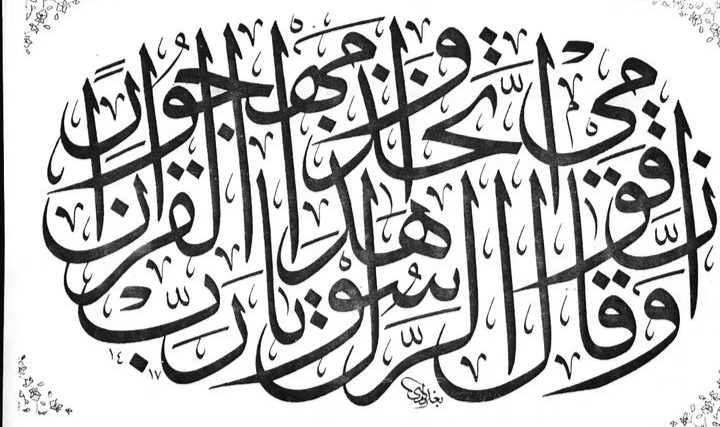 وَقَالَ الرَّسُولُ يَا رَبِّ إِنَّ قَوْمِي اتَّخَذُوا هَٰذَا الْقُرْآنَ مَهْجُورًا
١٤١٧